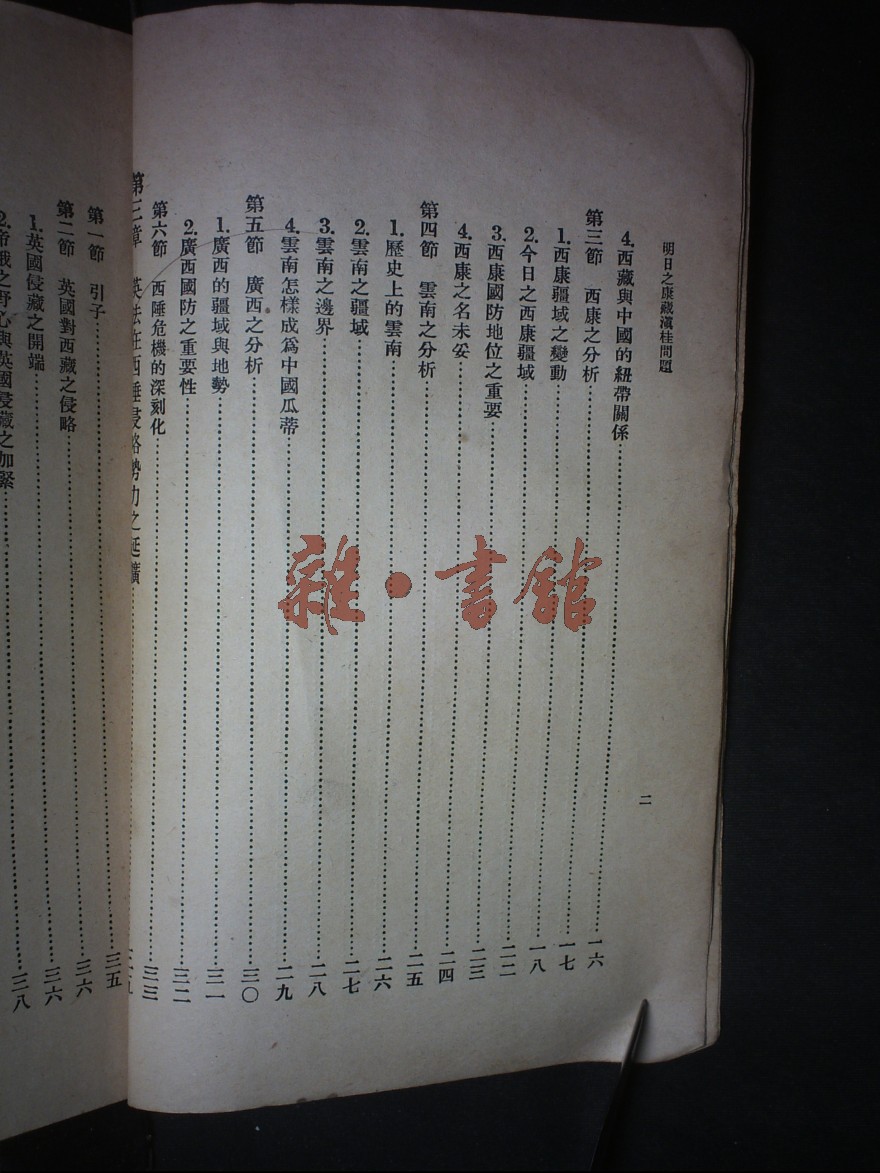 明日之康藏滇桂問題
二
4.西藏與中國的紐帶關係……一六
第三節 西康之分析……一七
1.西康疆域之變動……一八
2.今日之西康疆域……二二
3.西康國防地位之重要……二三
4.西康之名未妥……二四
第四節 雲南之分析……二五
1.歷史上的雲南……二六
2.雲南之疆域……二七
3.雲南之邊界……二八
4.雲南怎樣成爲中國瓜蒂……二九
第五節 廣西之分析……三〇
1.廣西的疆域與地勢……三一
2.廣西國防之重要性……三二
第六節 西陲危機的深刻化……三三
第三章 英法在西陲侵略勢力之延擴……
第一節 引子……三五
第二節 英國對西藏之侵略……三六
1.英國侵藏之開端……三六
2.帝俄之野心與英國侵藏之加緊……三八
雜·書館